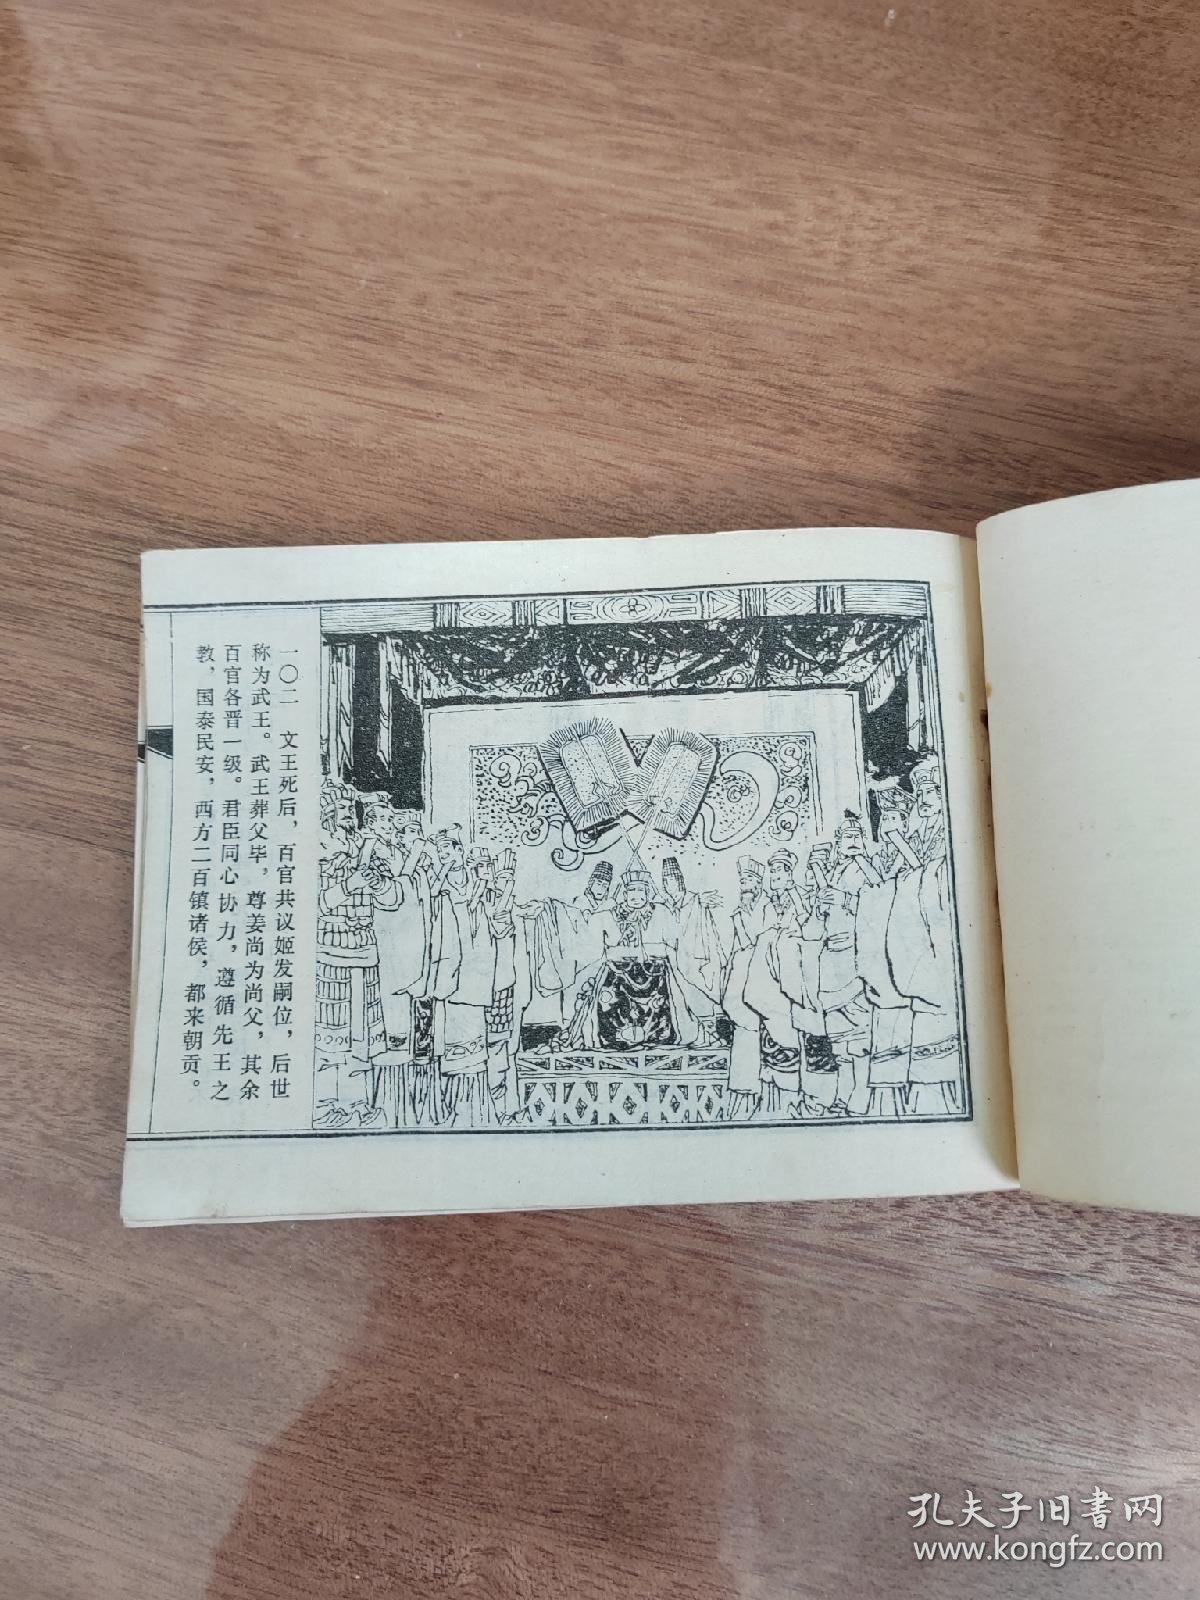 一〇二　文王死后，百官共议姬发嗣位，后世
称为武王。武王葬父毕，尊姜尚为尚父，其余
百官各晋一级。君臣同心协力，遵循先王之
教，国泰民安，西方二百镇诸侯，都来朝贡。
孔夫子旧书网
www.kongfz.com